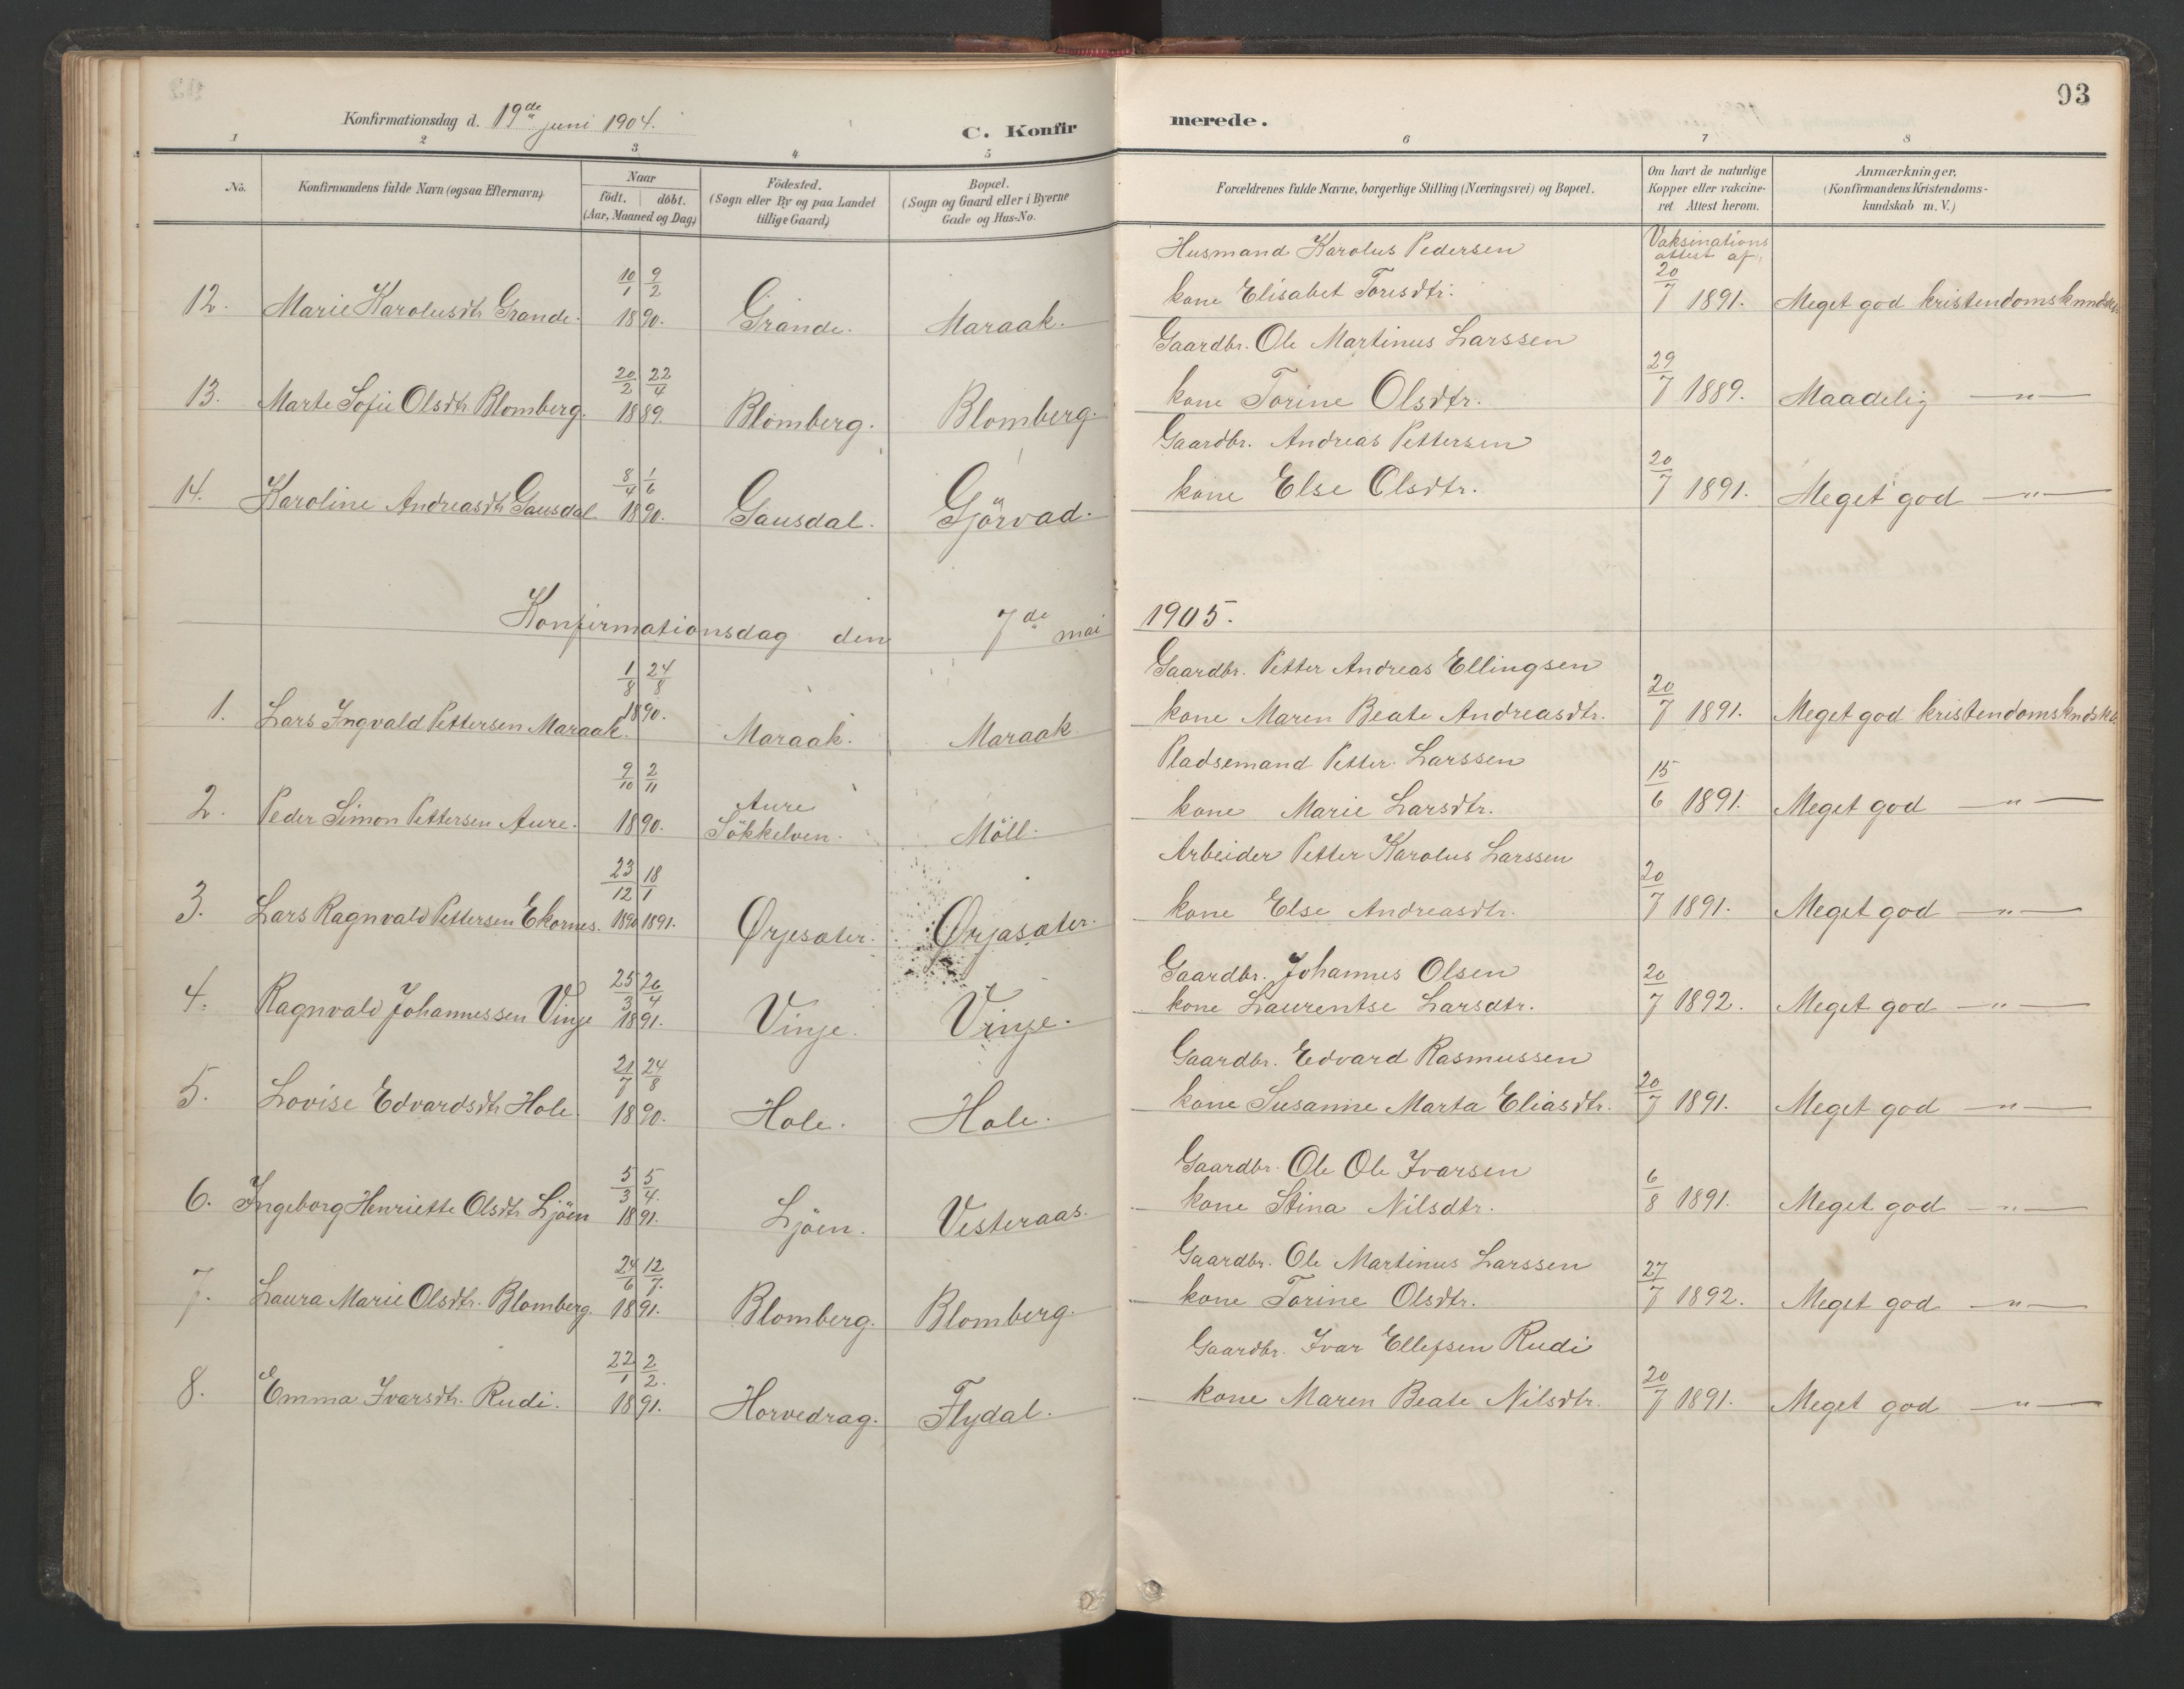 93
Konfirmationsdag d. 19de juni 1904.
C. Konfirmerede.
1 2 3 4 5 6 7 8
No.
Konfirmandens fulde Navn (ogsaa Efternavn).
Naar
födt. döbt.
(Aar, Maaned og Dag)
Födested.
(Sogn eller By og paa Landet
tillige Gaard)
Bopæl.
(Sogn og Gaard eller i Byerne
Gade og Hus-No.
Forældrenes fulde Navne, borgerlige Stilling (Næringsvei) og Bopæl.
Om havt de naturlige
Kopper eller vakcine-
ret Attest herom.
Anmærkninger,
(Konfirmandens Kristendoms-
kundskab m. V.)
Husmand Karolus Pedersen Vaksinations
attest af
12. Marie Karolusdtr Grande. 10/1 9/2 1890. Grande. Maraak. kone Elisabet Toresdtr. 20/7 1891. Meget god kristendomskundsk
Gaardbr. Ole Martinus Larssen
13. Marte Sofie Olsdtr Blomberg. 20/2 22/4 1889. Blomberg. Blomberg. kone Torine Olsdtr. 29/7 1889. Maadelig —"—
Gaardbr. Andreas Pettersen
14. Karoline Andreasdtr Gausdal 8/4 1/6 1890. Gausdal. Gjörvad. kone Else Olsdtr. 20/7 1891. Meget god —"—
Konfirmationsdag den 7de mai 1905.
Gaardbr. Petter Andreas Ellingsen
1. Lars Ingvald Pettersen Maraak. 1/8 24/8 1890. Maraak. Maraak kone Maren Beate Andreasdtr. 20/7 1891. Meget god kristendomskndsk
Pladsemand Petter Larssen
2. Peder Simon Pettersen Aure. 9/10 2/11 1890. Aure
Sökkelven. Möll. kone Marie Larsdtr. 15/6 1891. Meget god —"—
Arbeider Petter Karolus Larssen
3. Lars Ragnvald Pettersen Ekornes. 23/12 1890 18/1 1891. Ørjesæter. Ørjasæter. kone Else Andreasdtr. 20/7 1891. Meget god —"—
Gaardbr. Johannes Olsen
4. Ragnvald Johannessen Vinje 25/3 26/4 1891. Vinje. Vinje. kone Laurentse Larsdtr. 20/7 1892. Meget god —"—
Gaardbr. Edvard Rasmussen
5. Lovise Edvardsdtr Hole. 21/7 24/8 1890. Hole. Hole. kone Susanne Marta Eliasdtr. 20/7 1891. Meget god —"—
Gaardbr. Ole Ole Ivarsen
6. Ingeborg Henriette Olsdtr Ljöen 5/3 5/4. 1891. Ljöen. Vesteraas. kone Stina Nilsdtr. 6/8 1891. Meget god —"—
Gaardbr. Ole Martinus Larssen
7. Laura Marie Olsdtr. Blomberg. 24/6 12/7. 1891. Blomberg. Blomberg. kone Torine Olsdtr. 27/7 1892. Meget god —"—
Gaardbr. Ivar Ellefsen Rudi
8. Emma Ivarsdtr. Rudi. 22/1 2/2. 1891. Horvedrag. Flydal. kone Maren Beate Nilsdtr. 20/7 1891. Meget god —"—